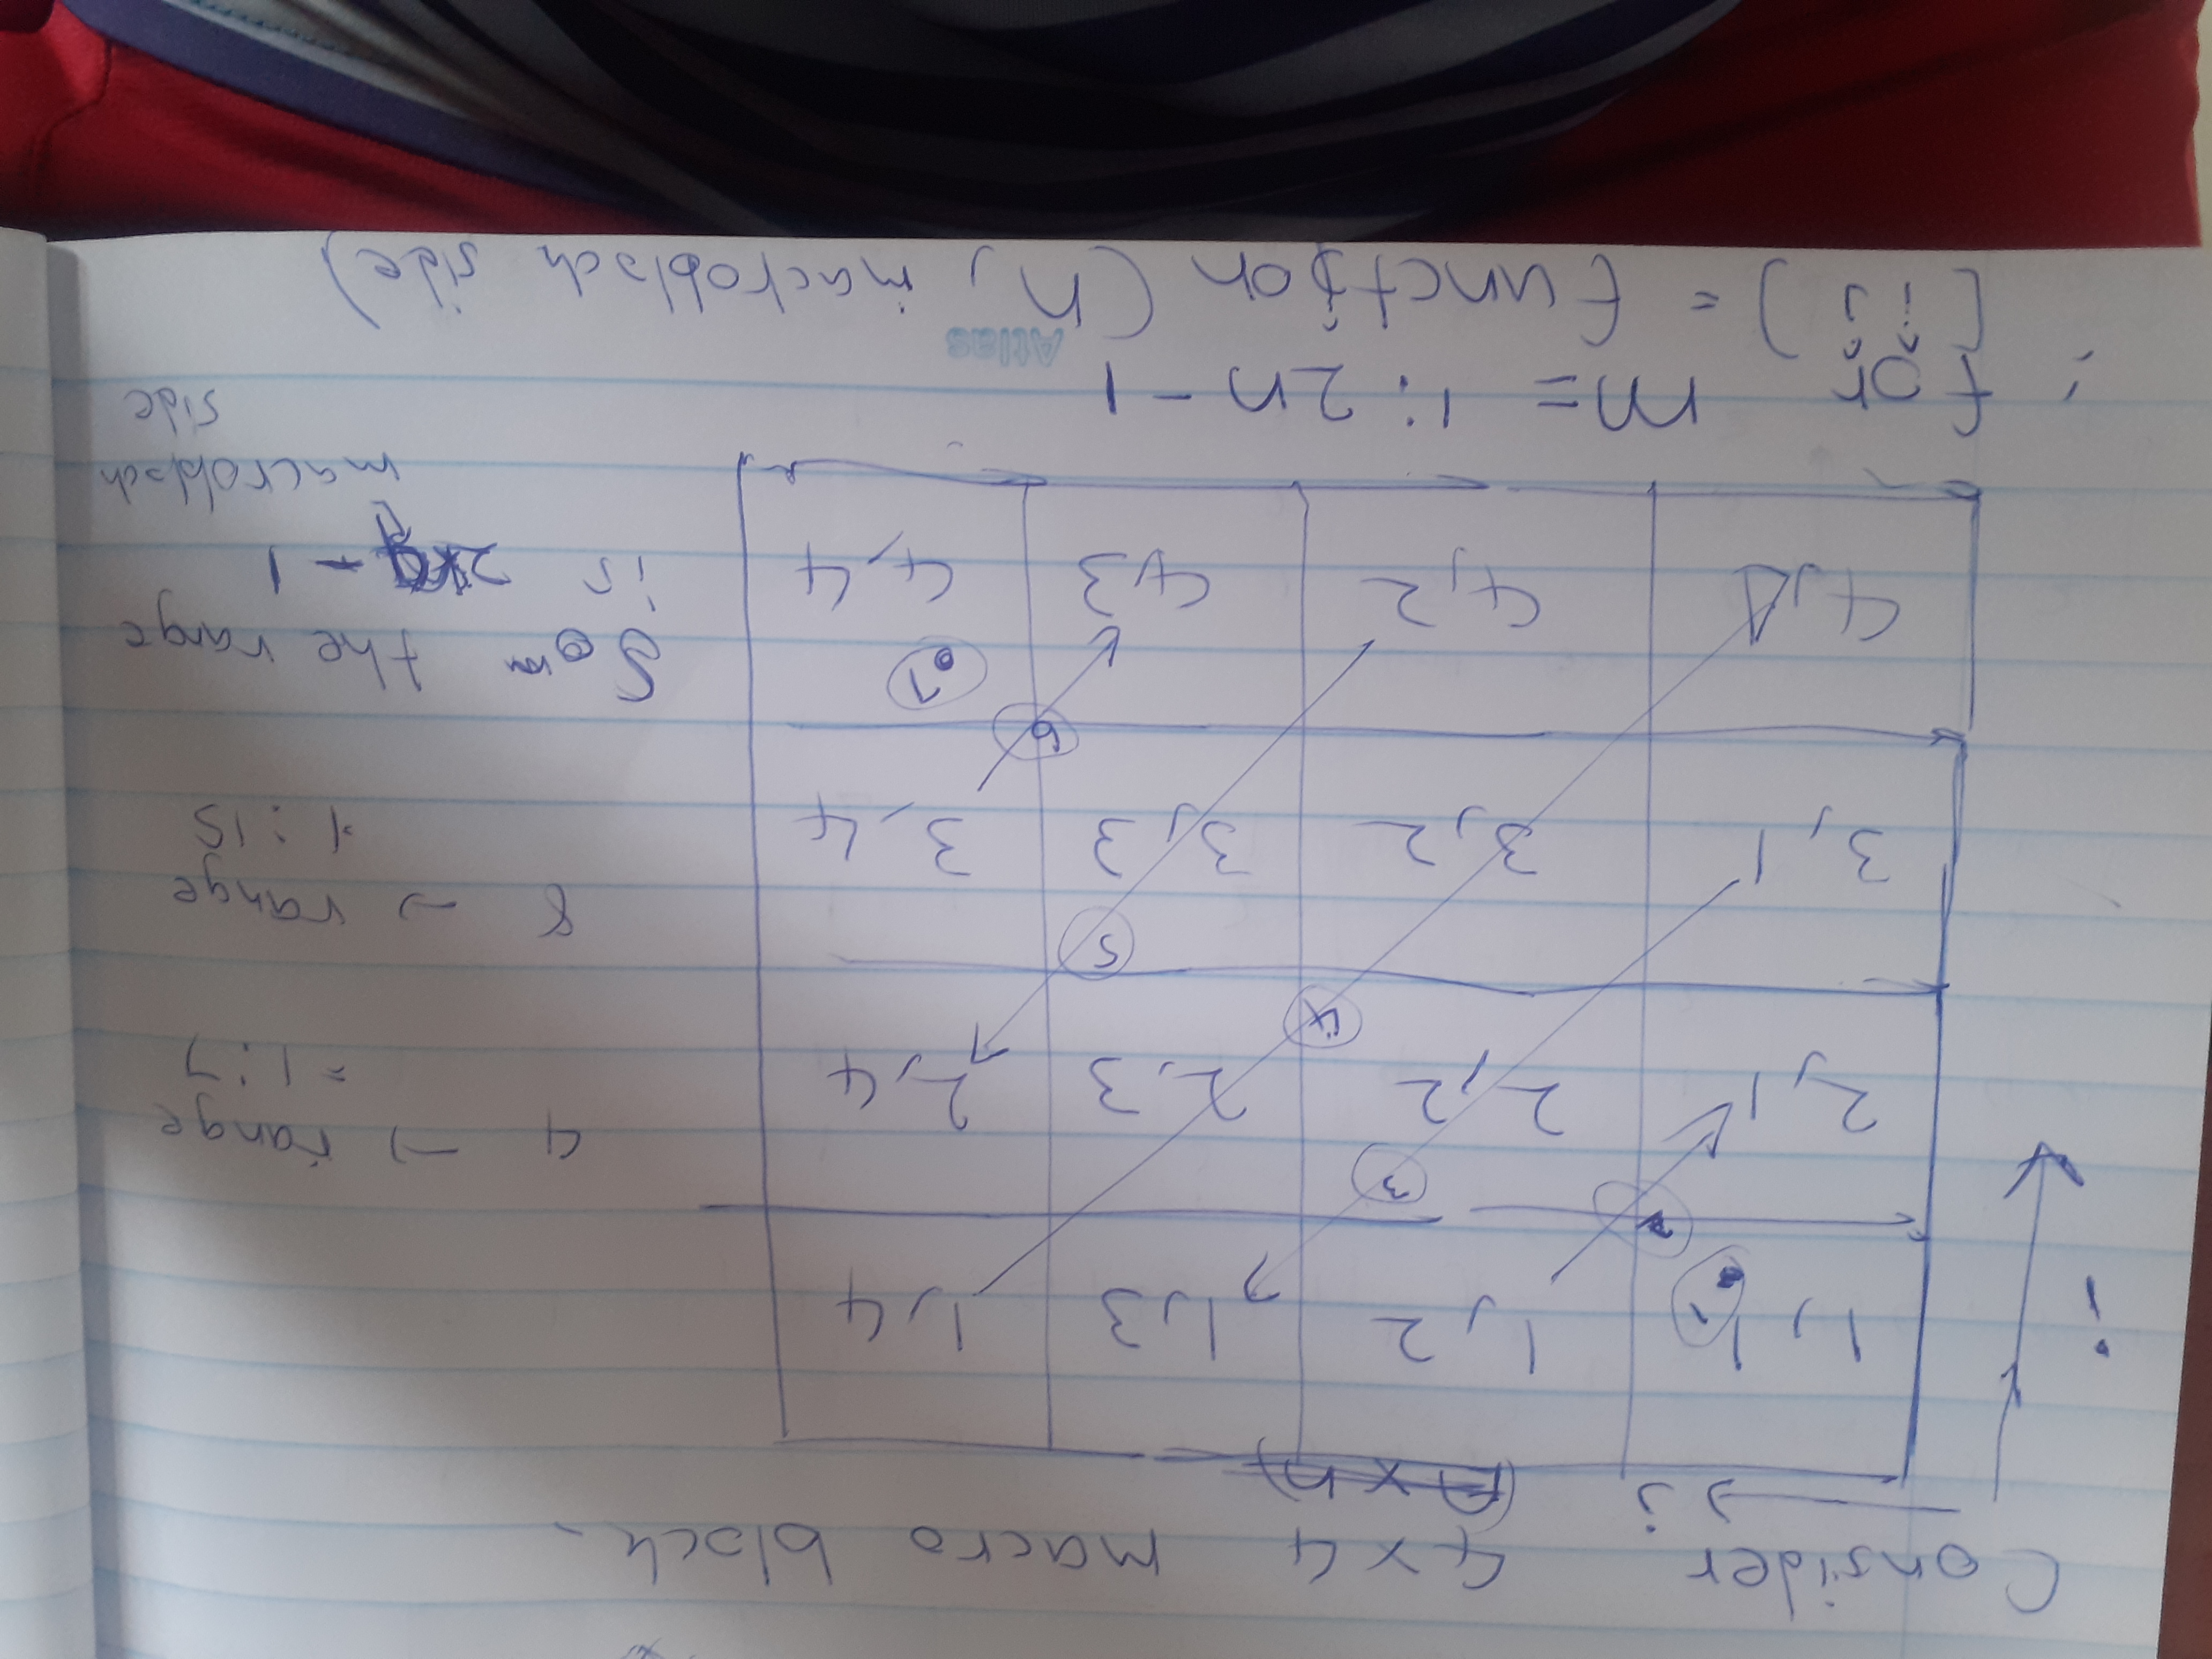 Consider 4x4 macro block.
→ j (n x n)
i
1,1 1 1,2 1,3 1,4
2 3
2,1 2,2 2,3 2,4
4 5
3,1 3,2 3,3 3,4
6 7
4,1 4,2 4,3 4,4
4 → range
= 1:7
8 → range
1:15
the range
is 2 - 1
macroblock
side
∴ for m = 1: 2n-1
[i j] = function (n, macroblock side)
Atlas